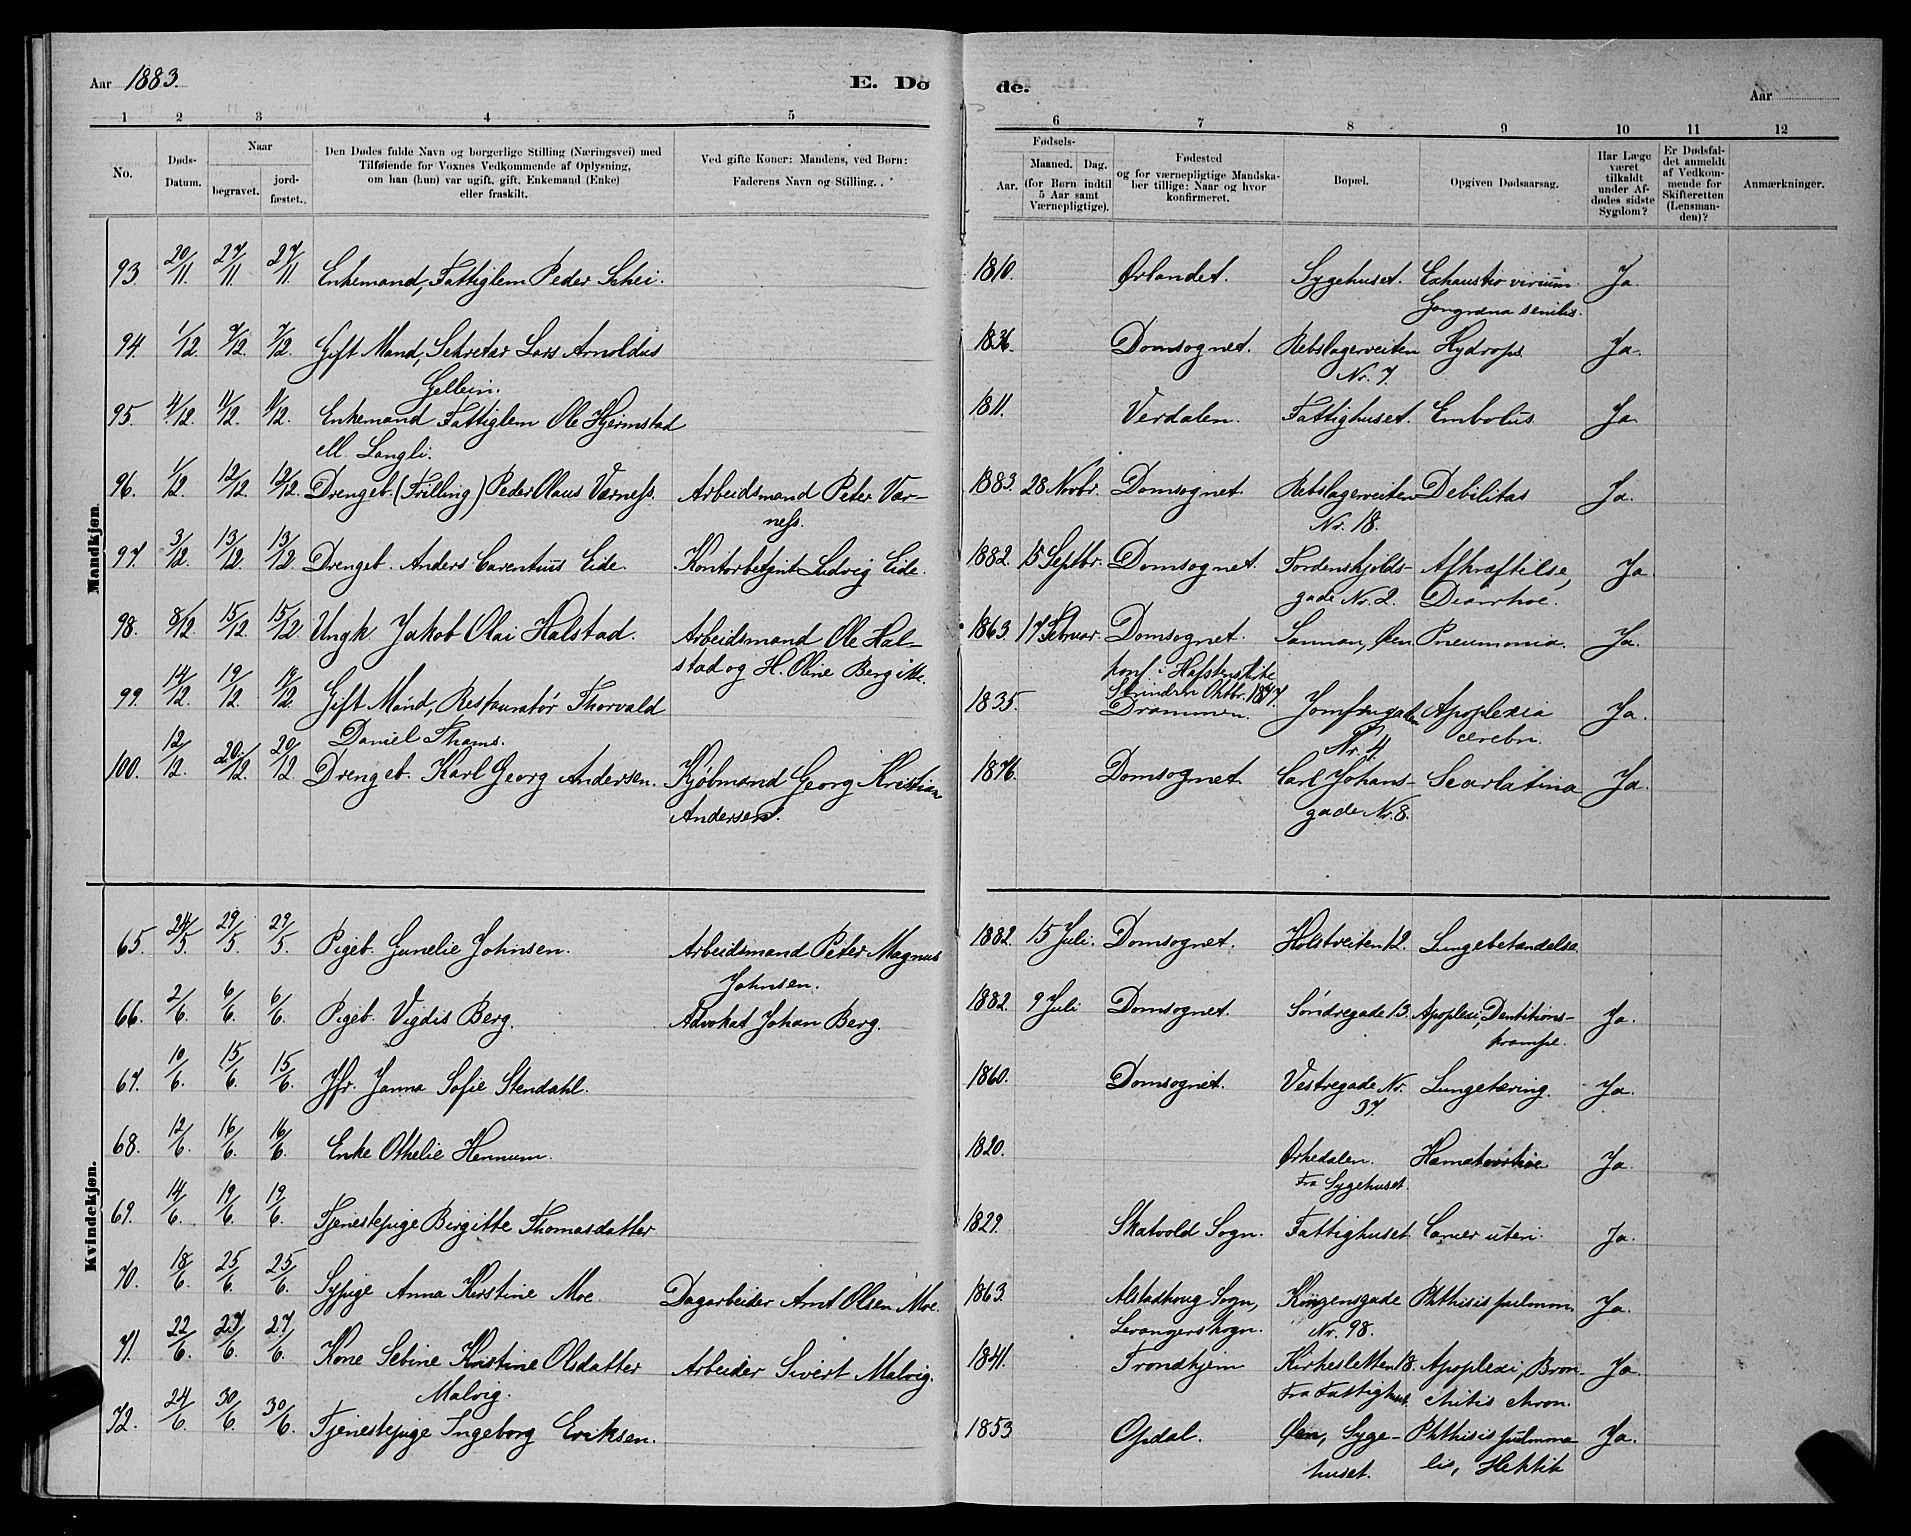 Aar 1883.
E. Dø
de.
Aar
1 2 3 4 5
6 7 8 9 10 11 12
No.
Døds-
Datum.
Naar
begravet.
jord-
fæstet.
Den Dødes fulde Navn og borgerlige Stilling (Næringsvei) med
Tilføiende for Voxnes Vedkommende af Oplysning,
om han (hun) var ugift, gift, Enkemand (Enke)
eller fraskilt.
Ved gifte Koner: Mandens, ved Børn:
Faderens Navn og Stilling.
Fødsels-
Aar.
Maaned. Dag.
(for Børn indtil
5 Aar samt
Værnepligtige).
Fødested
og for værnepligtige Mandska-
ber tillige: Naar og hvor
konfirmeret.
Bopæl.
Opgiven Dødsaarsag.
Har Læge
været
tilkaldt
under Af-
dødes sidste
Sygdom?
Er Dødsfal-
det anmeldt
af Vedkom-
mende for
Skifteretten
(Lensman-
den)?
Anmærkninger.
Mandkjøn.
93. 20/11. 27/11. 27/11. Enkemand, Fattiglem Peder Schei. 1810. Ørlandet. Sygehuset. Exhaustio virium Ja.
Gangræna senilis.
94. 1/12. 7/12. 7/12. Gift Mand, Sekretær Lars Arnoldus 1836. Domsognet. Rebslagerveiten Hydrops. Ja.
Gellein. Nr. 7.
95. 4/12. 11/12. 11/12. Enkemand Fattiglem Ole Hjermstad 1811. Verdalen. Fattighuset. Embolus. Ja
ell. Langli.
96. 1/12. 12/12. 12/12. Drengeb. (Trilling) Peder Olaus Værness. Arbeidsmand Peter Vær- 1883. 28 Novbr. Domsognet. Rebslagerveiten Debilitas Ja.
ness. Nr. 18.
97. 3/12. 13/12. 13/12. Drengeb. Anders Carentius Eide. Kontorbetjent Ludvig Eide. 1882. 15 Septbr. Domsognet. Tordenskjolds- Afkræftelse, Ja.
gade Nr. 2. Diarrhoe.
98. 8/12. 15/12. 15/12. Ungk. Jakob Olai Halstad. Arbeidsmand Ole Hal- 1863. 17 Februar. Domsognet. Sannan, Øen Pneumonia. Ja.
stad og H. Oline Bergitte. konf. i Hafstenskirke
Strinden Oktbr. 1877.
99. 14/12. 19/12. 19/12. Gift Mand, Restauratør Thorvald 1835. Drammen. Jomfrugaden Apoplexia Ja.
Daniel Thams. Nr. 4. cerebri.
100. 12/12. 20/12. 20/12. Drengeb. Karl Georg Andersen. Kjøbmand Georg Kristian 1876. Domsognet. Carl Johans- Scarlatina Ja.
Andersen. gade Nr. 8.
Kvindekjøn.
65. 24/5. 29/5. 29/5. Pigeb. Gunelie Johnsen. Arbeidsmand Peter Magnus 1882. 15 Juli. Domsognet. Holstveiten 12. Lungebetændelse
Johnsen.
66. 2/6. 6/6. 6/6. Pigeb. Vigdis Berg. Advokat Johan Berg. 1882. 9 Juli Domsognet. Søndregade 13. Apoplexi, Dentitions- Ja.
krampe.
67. 10/6. 15/6. 15/6. Jfr. Janna Sofie Stendahl. 1860. Domsognet. Vestregade Nr. Lungetæring. Ja.
37.
68. 12/6. 16/6. 16/6. Enke Othelie Hennum. 1820. Ørkedalen. Ja.
Fra Sygehuset.
69. 14/6. 19/6. 19/6. Tjenestepige Birgitte Thomasdatter 1829. Skatvold Sogn. Fattighuset. Cancer uteri. Ja.
70. 18/6. 25/6. 25/6. Sypige Anna Kirstine Moe. Dagarbeider Arnt Olsen Moe. 1863. Alstadhoug Sogn, Kongensgade Phthisis pulmon. Ja.
Levangers Sogn. Nr. 98.
71. 22/6. 27/6. 27/6. Kone Sebine Kristine Olsdatter Arbeider Sivert Malvig. 1841. Trondhjem Kirkesletten 18. Apoplexi, Bron- Ja.
Malvig. Fra Fattighuset. chitis chron.
72. 24/6. 30/6. 30/6. Tjenestepige Ingeborg Eriksen. 1853 Opdal. Øen, Syge- Phthisis pulmona- Ja.
huset. lis, Hektik